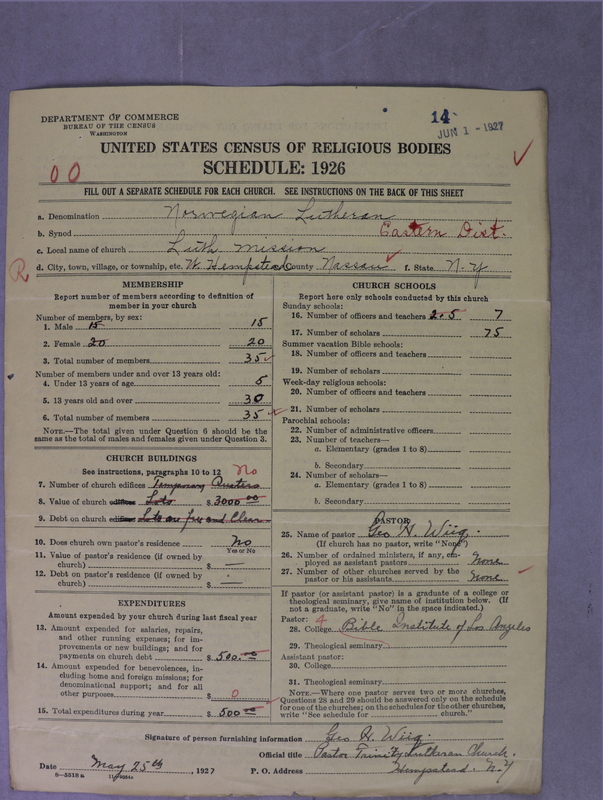 DEPARTMENT OF COMMERCE
BUREAU OF THE CENSUS
WASHINGTON
14
JUN 1 - 1927
UNITED STATES CENSUS OF RELIGIOUS BODIES
SCHEDULE: 1926
00
FILL OUT A SEPARATE SCHEDULE FOR EACH CHURCH. SEE INSTRUCTIONS ON THE BACK OF THIS SHEET
a. Denomination Norwegian Lutheran
b. Synod Eastern Dist.
c. Local name of church Luth Mission
R
d. City, town, village, or township, etc. W. Hempstead County Nassau f. State N.Y
MEMBERSHIP
Report number of members according to definition of
member in your church
Number of members, by sex:
1. Male 15 15
2. Female 20 20
3. Total number of members 35
Number of members under and over 13 years old:
4. Under 13 years of age 5
5. 13 years old and over 30
6. Total number of members 35
NOTE.—The total given under Question 6 should be the
same as the total of males and females given under Question 3.
CHURCH BUILDINGS
See instructions, paragraphs 10 to 12 No
7. Number of church edifices Temporary Quarters
8. Value of church edifices Lots $ 3000 00
9. Debt on church edifices Lots are free and Clear
10. Does church own pastor's residence No
Yes or No
11. Value of pastor's residence (if owned by
church) $ —
12. Debt on pastor's residence (if owned by
church) $ —
EXPENDITURES
Amount expended by your church during last fiscal year
13. Amount expended for salaries, repairs,
and other running expenses; for im-
provements or new buildings; and for
payments on church debt $ 500.00
14. Amount expended for benevolences, in-
cluding home and foreign missions; for
denominational support; and for all
other purposes $ 0
15. Total expenditures during year $ 500 00
CHURCH SCHOOLS
Report here only schools conducted by this church
Sunday schools:
16. Number of officers and teachers 2.5 7
17. Number of scholars 75
Summer vacation Bible schools:
18. Number of officers and teachers
19. Number of scholars
Week-day religious schools:
20. Number of officers and teachers
21. Number of scholars
Parochial schools:
22. Number of administrative officers
23. Number of teachers—
a. Elementary (grades 1 to 8)
b. Secondary
24. Number of scholars—
a. Elementary (grades 1 to 8)
b. Secondary
PASTOR
25. Name of pastor Geo H. Wiig.
(If church has no pastor, write "None")
26. Number of ordained ministers, if any, em-
ployed as assistant pastors None
27. Number of other churches served by the
pastor or his assistants None
If pastor (or assistant pastor) is a graduate of a college or
theological seminary, give name of institution below. (If
not a graduate, write "No" in the space indicated.)
Pastor: 4
28. College Bible Institute of Los Angeles
29. Theological seminary
Assistant pastor:
30. College
31. Theological seminary
NOTE.—Where one pastor serves two or more churches,
Questions 28 and 29 should be answered only on the schedule
for one of the churches; on the schedules for the other churches,
write "See schedule for church."
Signature of person furnishing information Geo H. Wiig.
Official title Pastor Trinity Lutheran Church.
Date May 25th, 1927 P. O. Address Hempstead. N.Y
8—5318a